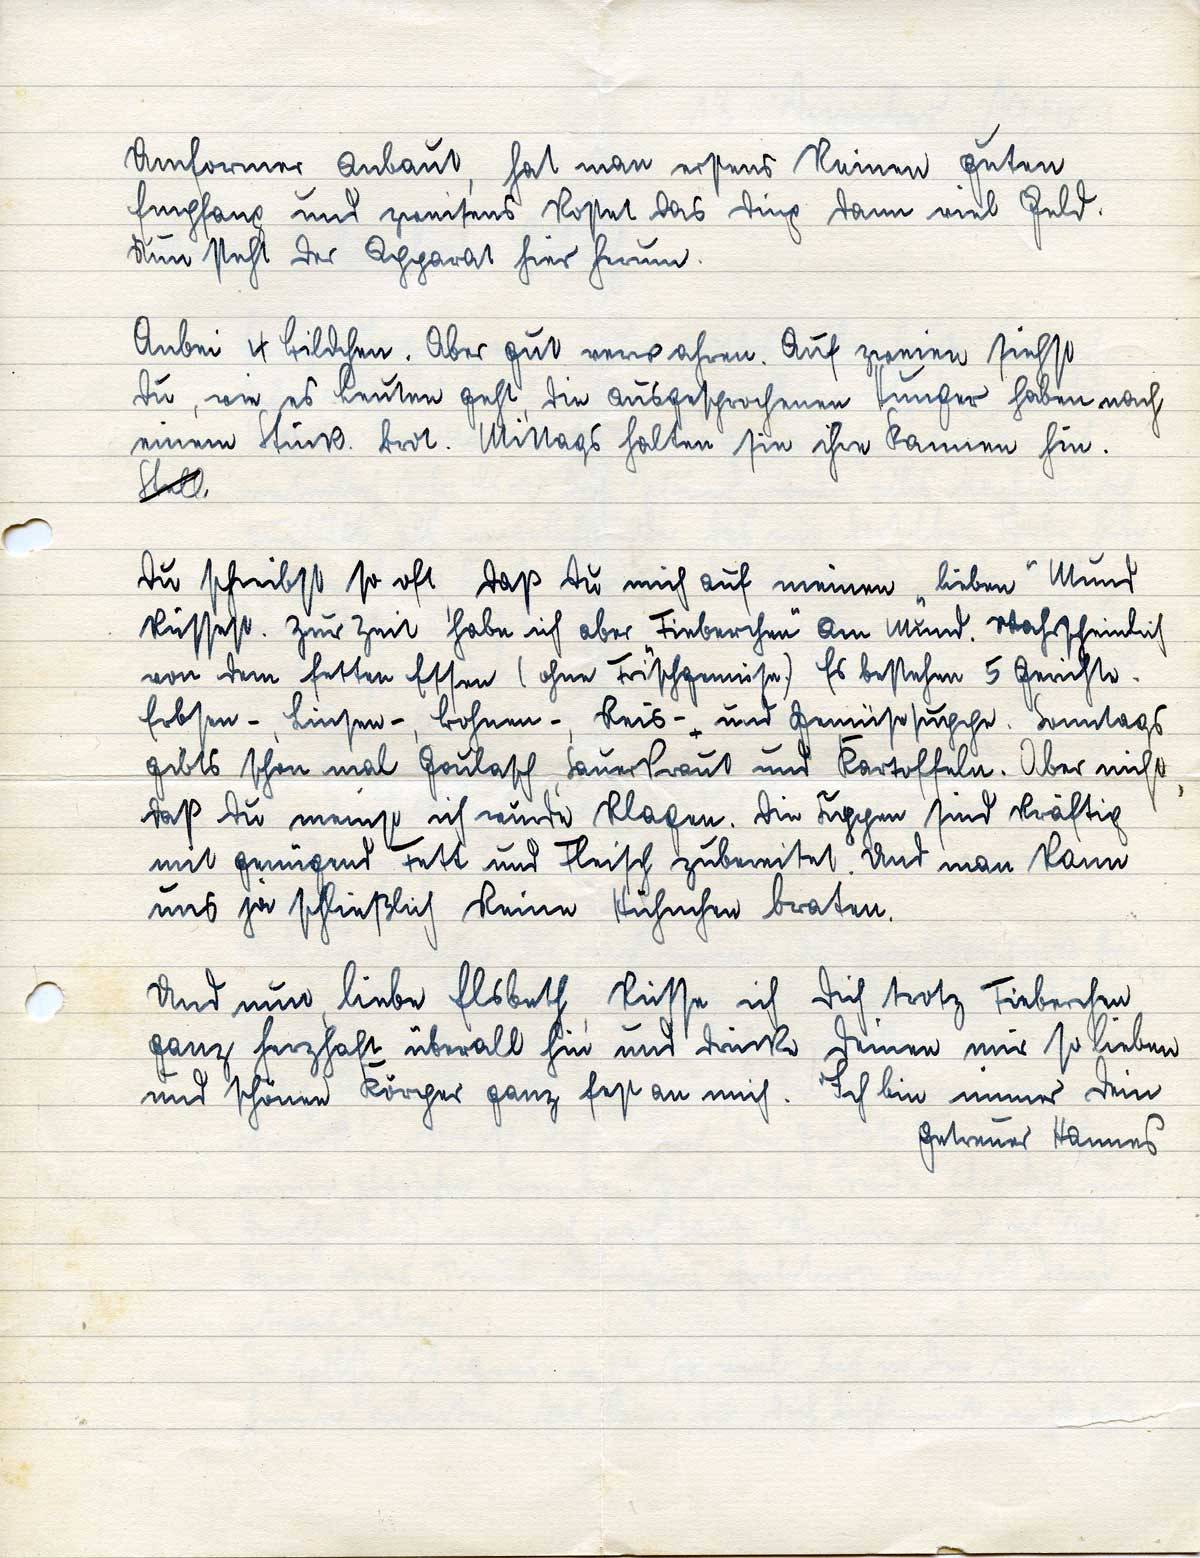 Umformer anbaut, hat man erstens keinen guten
Empfang und zweitens kostet das Ding dann viel Geld.
Nun steht der Apparat hier herum.
Anbei 4 Bildchen. Aber gut verwahren. Auf zweien siehst
Du, wie es Leuten geht, die ausgesprochenen Hunger haben nach
einem Stück Brot. Mittags halten sie ihre Kannen hin.
Du schreibst so oft daß Du mich auf meinen „lieben“ Mund
küssest. Zur Zeit habe ich aber „Fieberchen“ am Mund. Wahrscheinlich
von dem fetten Essen (ohne Frischgemüse) Es bestehen 5 Gerichte.
Erbsen-, Linsen-, Bohnen-, Reis- und Gemüsesuppe. Sonntags
gibts schon mal Goulasch, Sauerkraut und Kartoffeln. Aber nicht,
daß Du meinst ich würde klagen. Die Suppen sind kräftig
mit genügend Fett und Fleisch zubereitet. Und man kann
uns ja schließlich keine Hühnchen braten.
Und nun, liebe Elsbeth, küsse ich Dich trotz Fieberchen
ganz herzhaft überall hin und drücke Deinen mir so lieben
und schönen Körper ganz fest an mich. Ich bin immer Dein
getreuer Hannes